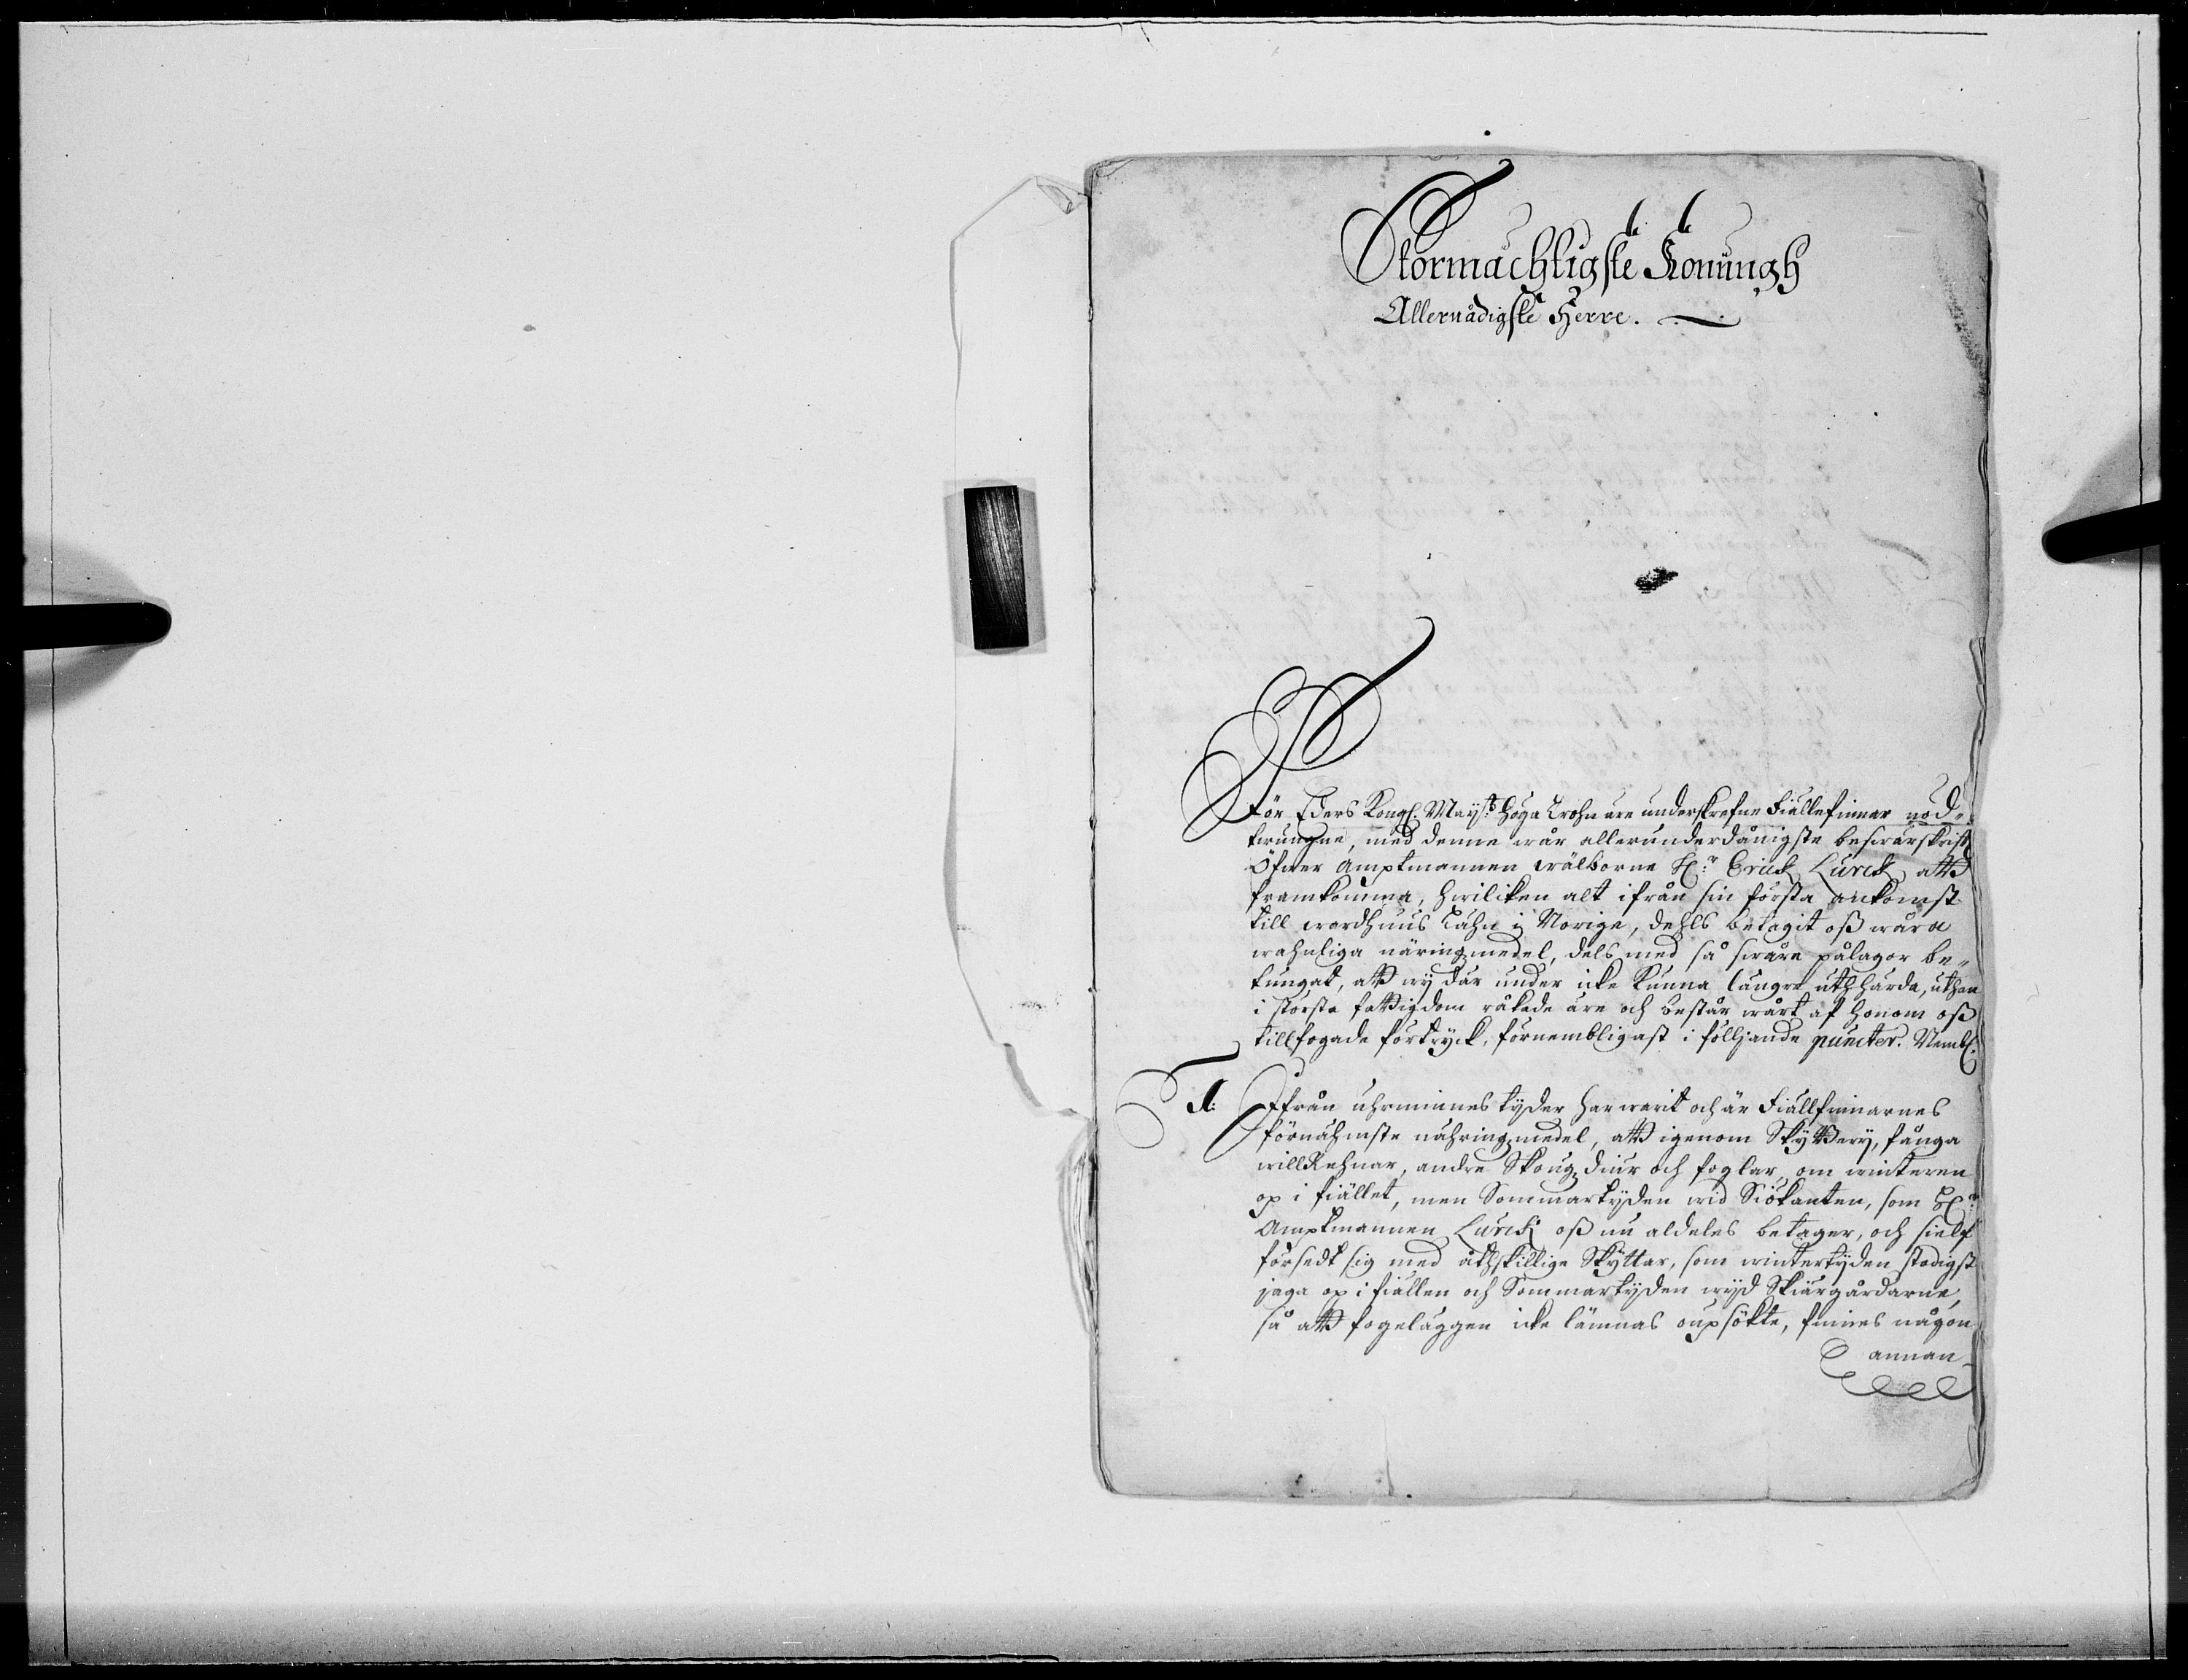 Stormächtigste Konungh
Allernådigste Herre.
För Eders Kongl. Mayts höga Trohn äre underskrefne Fiällefinner nöd-
twungne, med denne wår allerunderdånigste beswärskrift
Öfwer Amptmannen wälborne Hr Erick Lurck att
framkomma, hwilcken alt ifrån sin första ankomst
till wardhuus Lähn i Norige, dehls betagit oß wåra
wahnliga näringzmedel, dels med så swåra pålagor be-
tungat, att wij där under icke kunna längre uthharda, uthan
i största fattigdom råkade äre och består wårt af honom oß
tillfogade förtryck, förnembligast i fölljande puncter. Nembl:
1: Ifrån uhrminnes tijder har warit och är Fiällfinnarnes
förnähmste nähringzmedel, att igenom Skytterij, fånga
willRehnar, andre Skougz diur och foglar, om winteren
op i fiället, men Sommartijden wid Siökanten, som Hr
Amptmannen Lurck oß nu aldeles betager, och sielf
försedt sig med åthskillige Skyttar, som wintertijden stadigst
jaga op i fiällen och Sommartijden wijd Skiärgårdarne,
så att fogeläggen icke lämnas oupsökte, finnes någon
annan